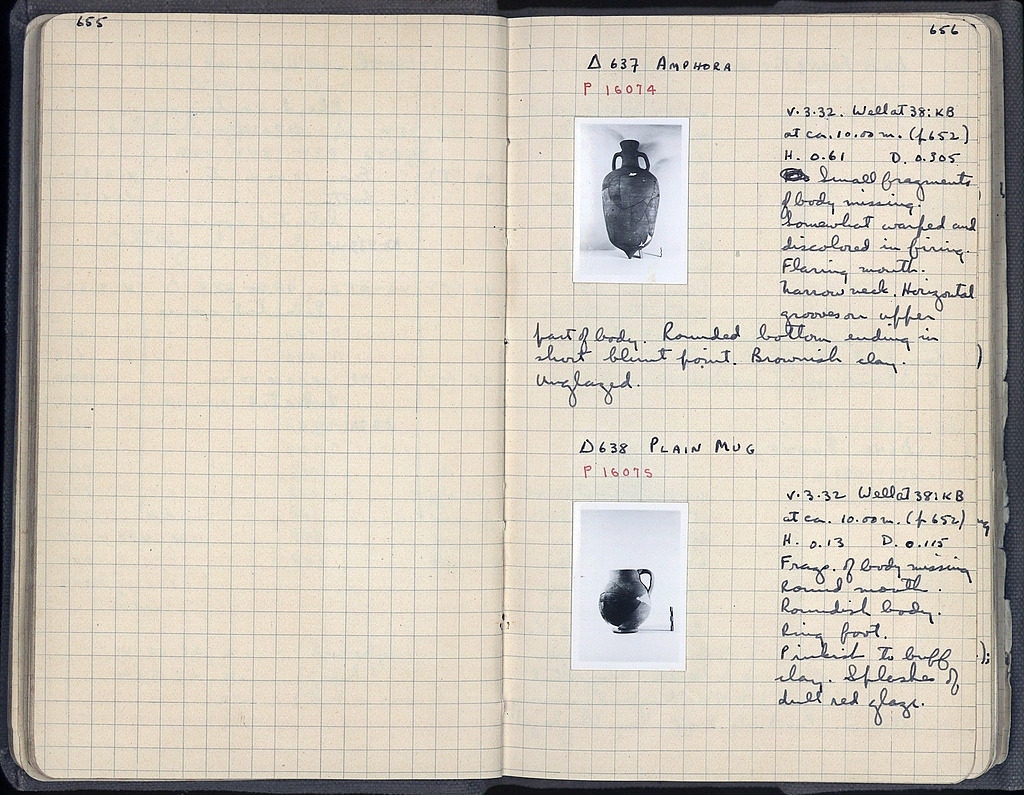 655
656
Δ 637 AMPHORA
P 16074
V.3.32. Well at 38:KB
at ca. 10.00 m. (p652)
H. 0.61 D. 0.305
Small fragments
of body missing.
Somewhat warped and
discolored in firing.
Flaring mouth.
Narrow neck. Horizontal
grooves on upper
part of body. Rounded bottom ending in
short blunt point. Brownish clay.
Unglazed.
Δ 638 PLAIN MUG
P 16075
V.3.32 Well at 38:KB
at ca. 10.00 m. (p652)
H. 0.13 D. 0.115
Frags. of body missing
Round mouth.
Roundish body.
Ring foot.
Pinkish to buff
clay. Splashes of
dull red glaze.